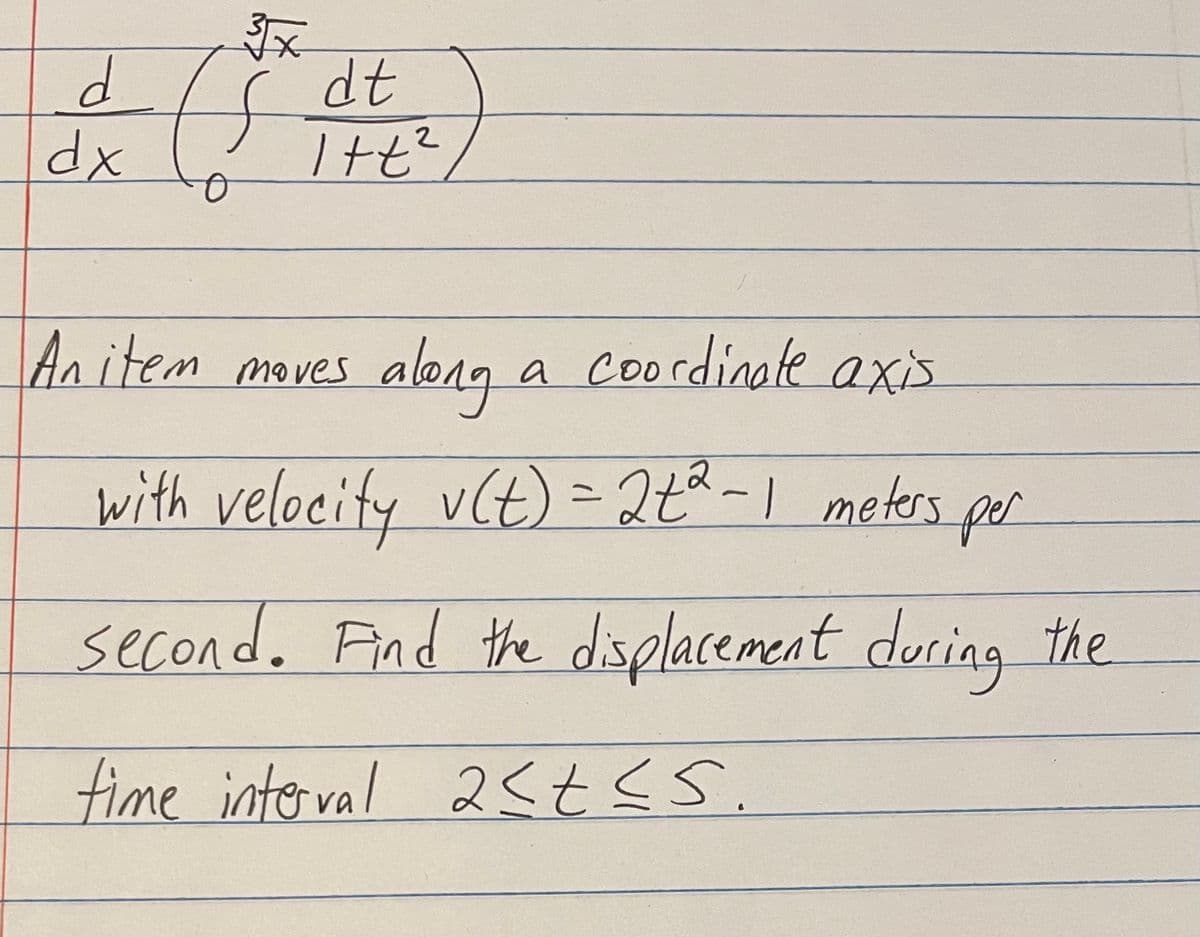 d/dx ( ∫₀^∛x dt/(1+t²) )
An item moves along a coordinate axis
with velocity v(t) = 2t² - 1 meters per
second. Find the displacement during the
time interval 2 ≤ t ≤ 5.